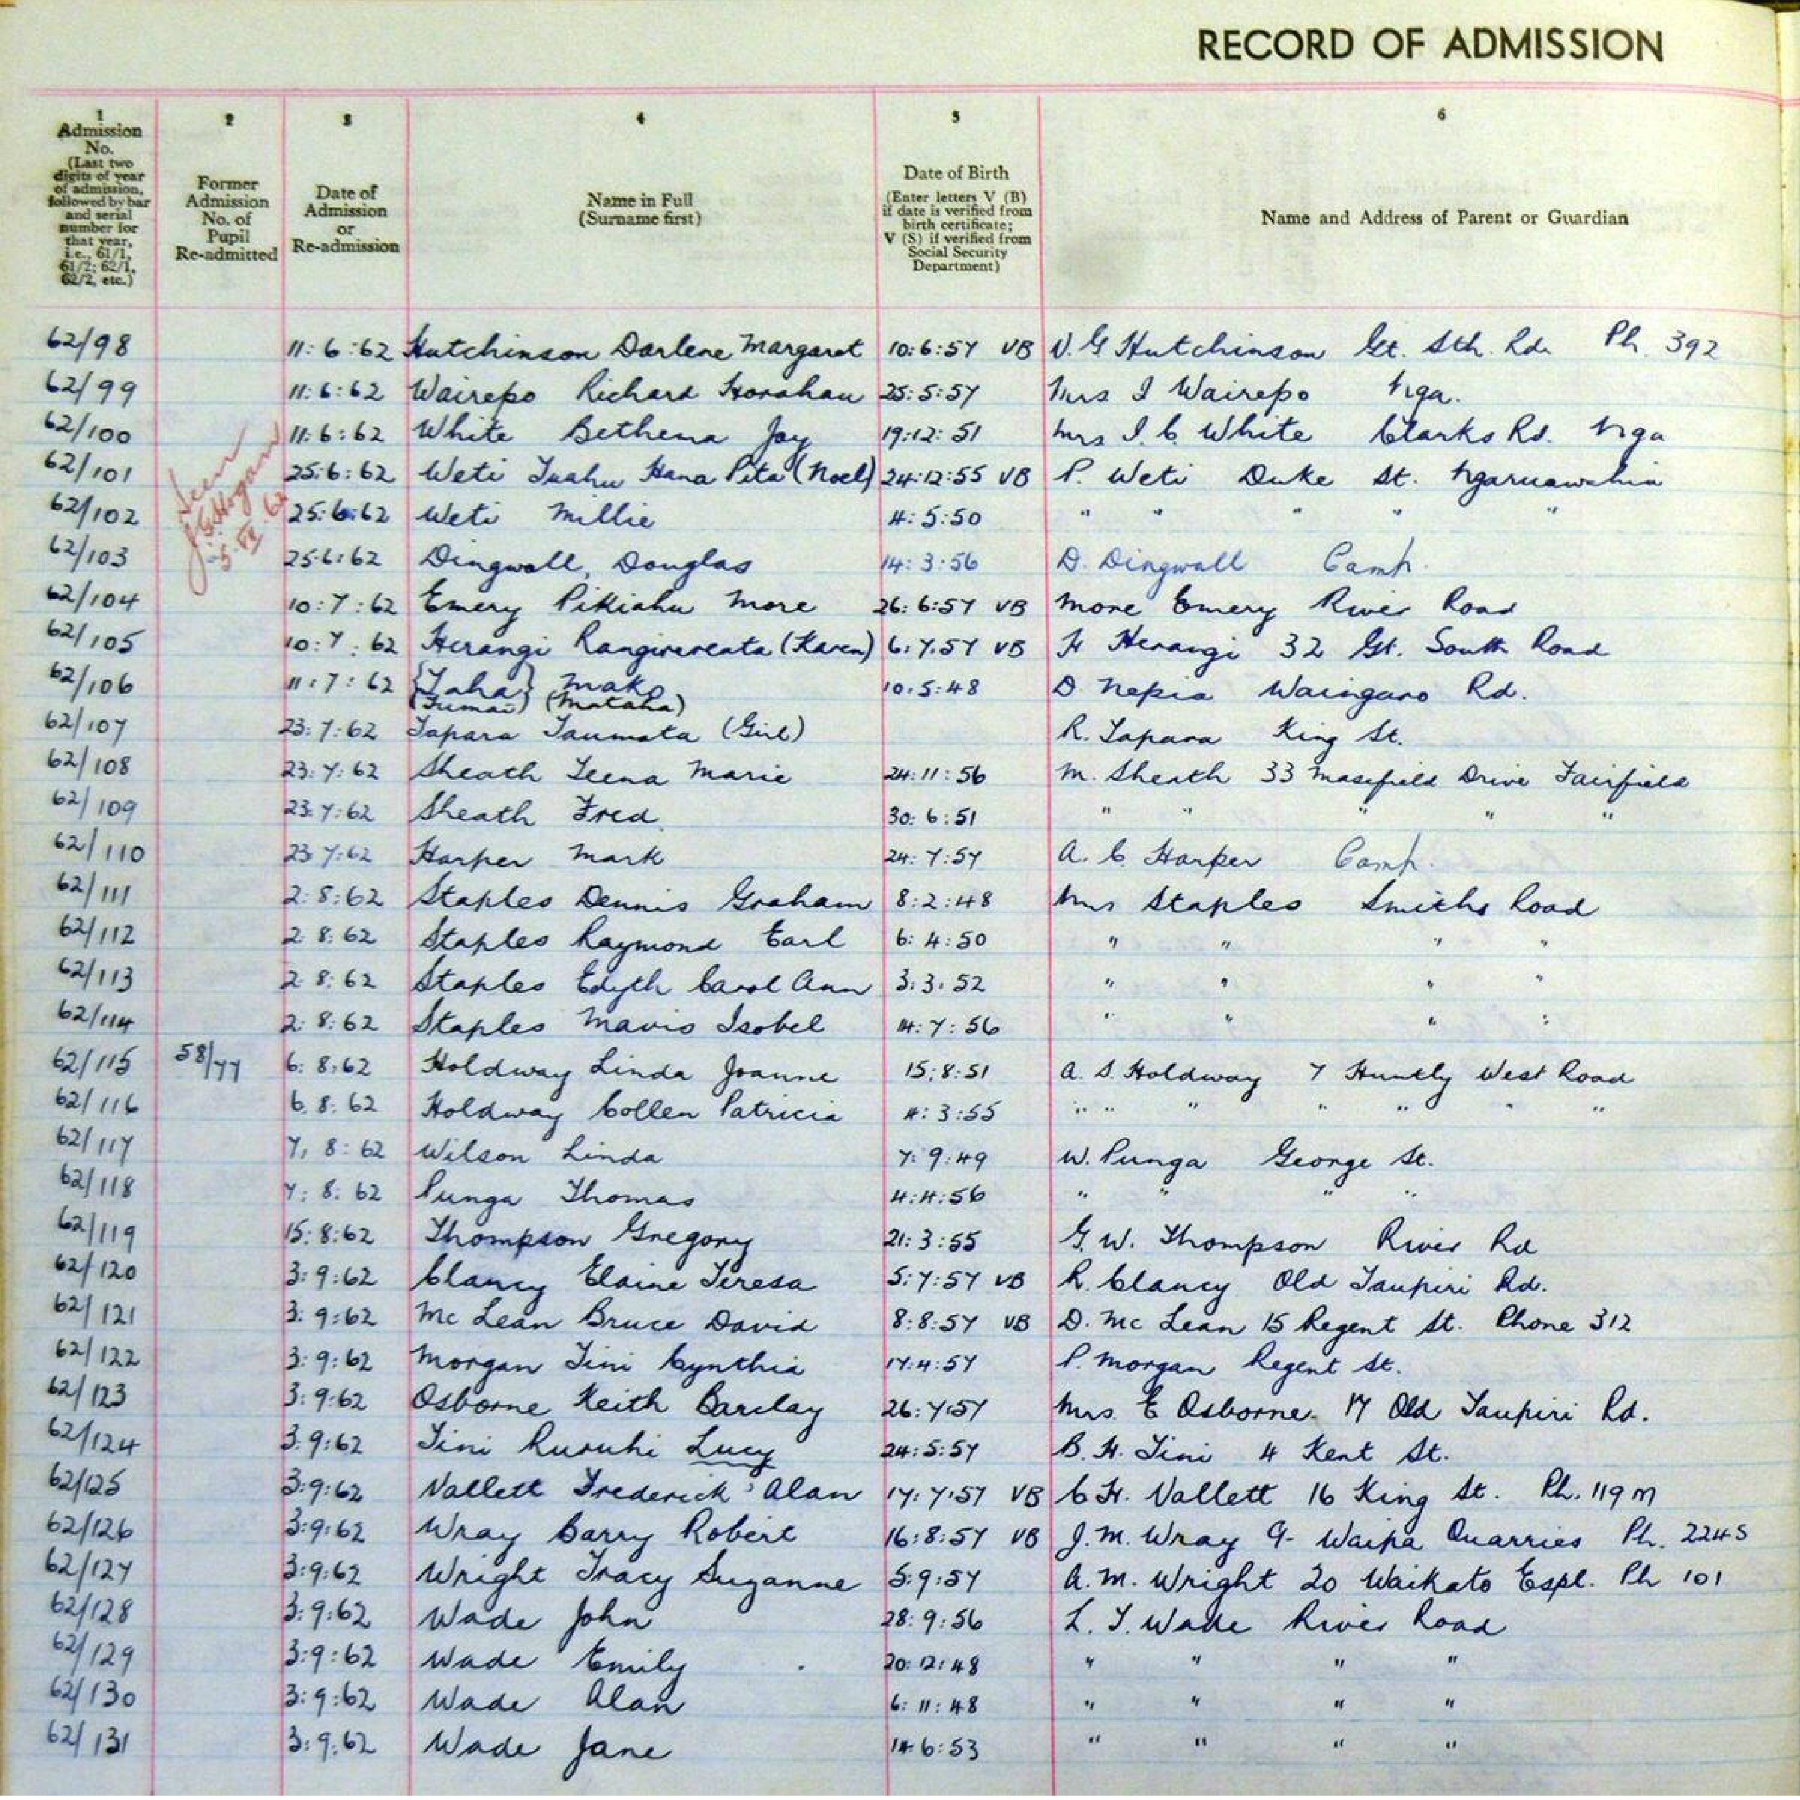 RECORD OF ADMISSION
1 2 3 4 5 6
Admission No. (Last two digits of year of admission, followed by bar and serial number for that year, i.e., 61/1, 61/2; 62/1, 62/2, etc.)
Former Admission No. of Pupil Re-admitted
Date of Admission or Re-admission
Name in Full (Surname first)
Date of Birth (Enter letters V (B) if date is verified from birth certificate; V (S) if verified from Social Security Department)
Name and Address of Parent or Guardian
62/98 11:6:62 Hutchinson Darlene Margaret 10:6:57 VB V. G Hutchinson Gt. Sth. Rd. Ph. 392
62/99 11:6:62 Wairepo Richard Horahau 25:5:57 Mrs I Wairepo Nga.
62/100 11:6:62 White Bethena Joy 19:12:51 Mrs I. C. White Clarks Rd. Nga
62/101 25:6:62 Weti Tuahu Hana Pita (Noel) 24:12:55 VB P. Weti Duke St. Ngaruawahia
62/102 25:6:62 Weti Millie 4:5:50 " " " " "
Seen J.G. Hogan 5.IX.62
62/103 25:6:62 Dingwall, Douglas 14:3:56 D. Dingwall Camp.
62/104 10:7:62 Emery Pikiahu More 26:6:57 VB More Emery River Road
62/105 10:7:62 Herangi (Karen) 6:7:57 VB H Herangi 32 Gt. South Road
62/106 11:7:62 {Taha} Mako 10:5:48 D. Nepia Waingaro Rd.
(Tumai) (Mataha)
62/107 23:7:62 Tapara Taumata (Girl) R. Tapara King St.
62/108 23:7:62 Sheath Teena Marie 24:11:56 M. Sheath 33 Masefield Drive Fairfield
62/109 23:7:62 Sheath Fred 30:6:51 " " " " "
62/110 23:7:62 Harper Mark 24:7:57 A. C. Harper Camp.
62/111 2:8:62 Staples Dennis Graham 8:2:48 Mrs Staples Smiths Road
62/112 2:8:62 Staples Raymond Earl 6:4:50 " " " "
62/113 2:8:62 Staples Edyth Carol Ann 3:3:52 " " " "
62/114 2:8:62 Staples Mavis Isobel 14:7:56 " " " "
62/115 58/77 6:8:62 Holdway Linda Joanne 15:8:51 A. S. Holdway 7 Huntly West Road
62/116 6:8:62 Holdway Collen Patricia 4:3:55 " " " " " " "
62/117 7:8:62 Wilson Linda 7:9:49 W. Punga George St.
62/118 7:8:62 Punga Thomas 4:4:56 " " " "
62/119 15:8:62 Thompson Gregory 21:3:55 G. W. Thompson River Rd
62/120 3:9:62 Clancy Elaine Teresa 5:7:57 VB R. Clancy Old Taupiri Rd.
62/121 3:9:62 Mc Lean Bruce David 8:8:57 VB D. Mc Lean 15 Regent St. Phone 312
62/122 3:9:62 Morgan Tini Cynthia 17:4:57 P. Morgan Regent St.
62/123 3:9:62 Osborne Keith Barclay 26:7:57 Mrs E Osborne. 17 Old Taupiri Rd.
62/124 3:9:62 Tini Ruruhi Lucy 24:5:57 B. H. Tini 4 Kent St.
62/125 3:9:62 Vallett Frederick Alan 17:7:57 VB C H. Vallett 16 King St. Ph. 119 M
62/126 3:9:62 Wray Barry Robert 16:8:57 VB J. M. Wray 9- Waipa Quarries Ph. 224S
62/127 3:9:62 Wright Tracy Suzanne 5:9:57 A. M. Wright 20 Waikato Espl. Ph 101
62/128 3:9:62 Wade John 28:9:56 L. T. Wade River Road
62/129 3:9:62 Wade Emily 20:12:48 " " " "
62/130 3:9:62 Wade Alan 6:11:48 " " " "
62/131 3:9:62 Wade Jane 14:6:53 " " " "